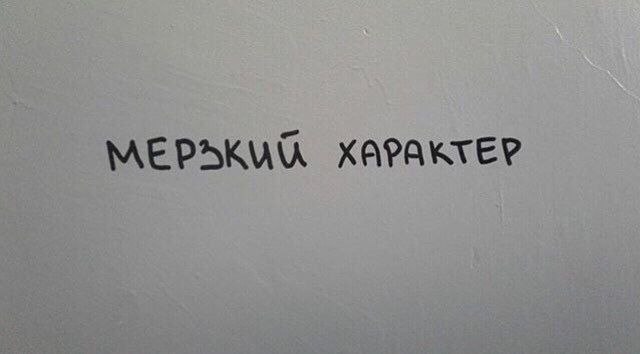 МЕРЗКИЙ ХАРАКТЕР